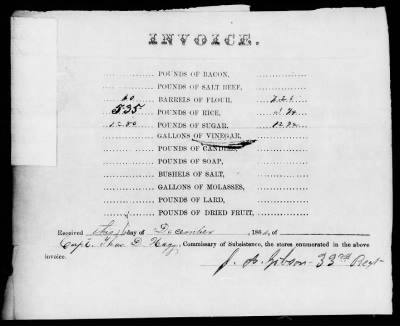 INVOICE.
POUNDS OF BACON,
POUNDS OF SALT BEEF,
BARRELS OF FLOUR,
535 POUNDS OF RICE,
1280 POUNDS OF SUGAR,
GALLONS OF VINEGAR,
POUNDS OF CANDLES,
POUNDS OF SOAP,
BUSHELS OF SALT,
GALLONS OF MOLASSES,
POUNDS OF LARD,
POUNDS OF DRIED FRUIT,
Received this day of December 186
Capt. Thos D. Commissary of Subsistence, the stores enumerated in the above
invoice.
Gibson 33rd Regt